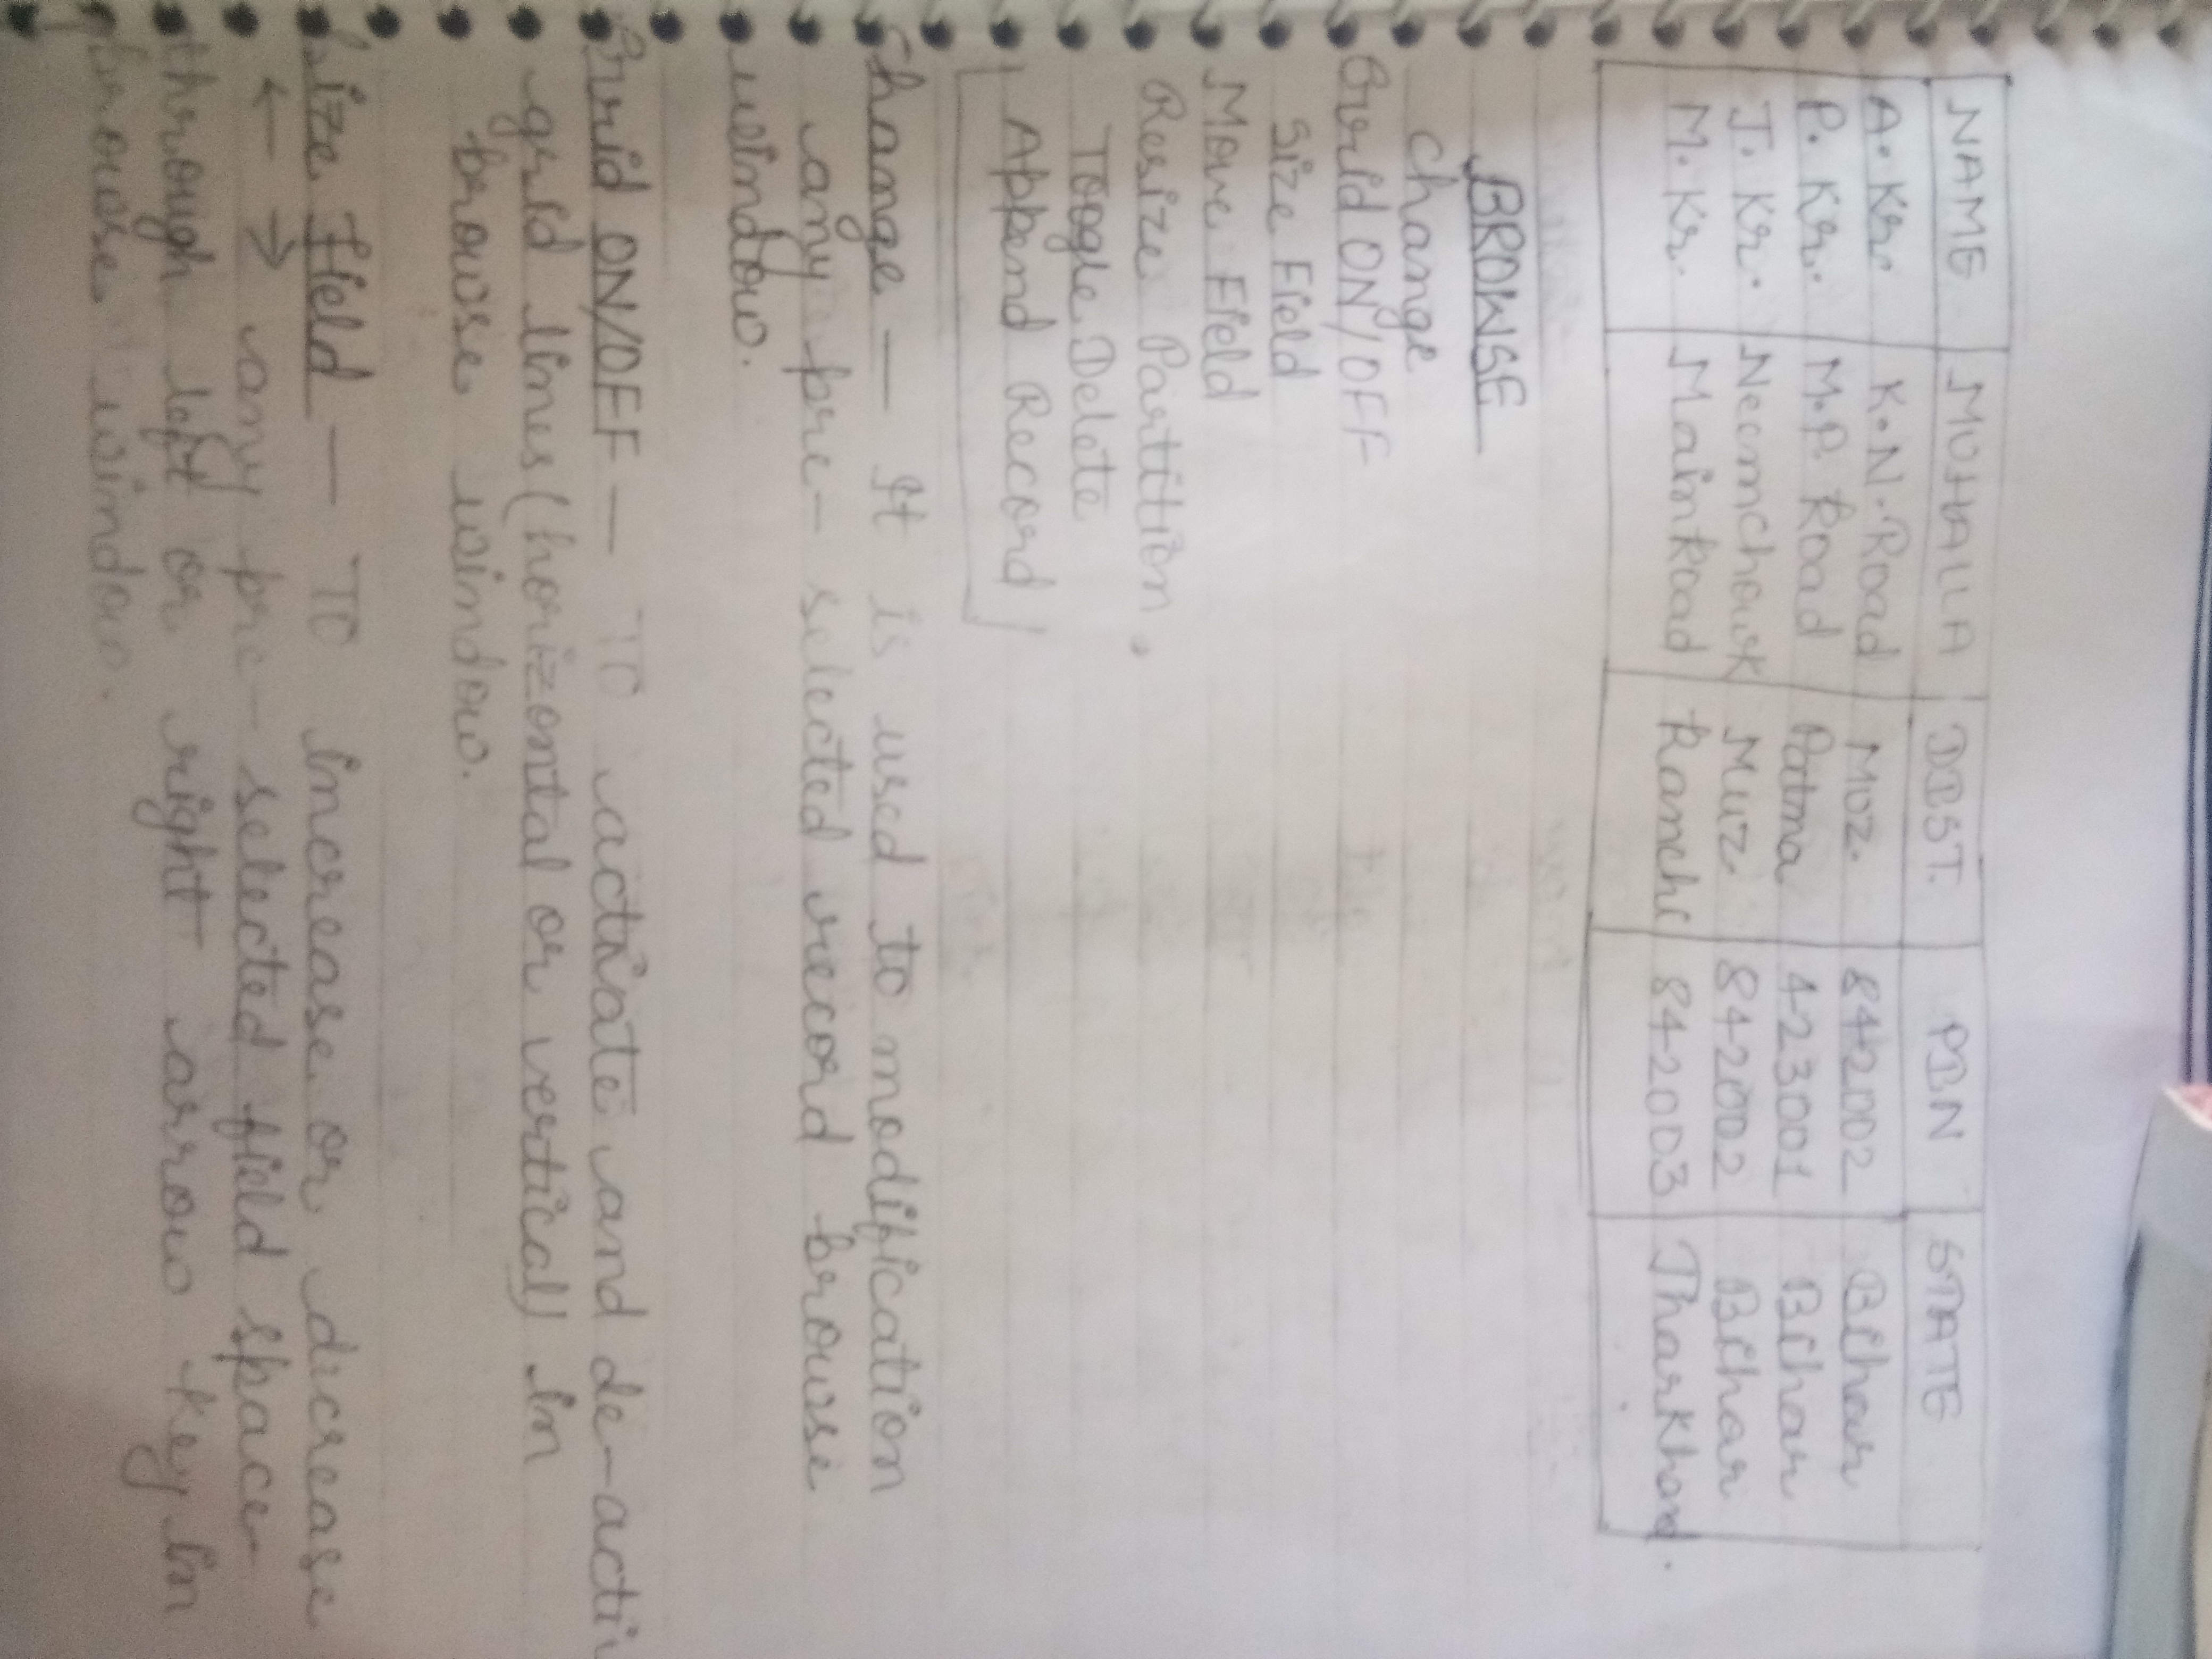 NAME MUHALLA DIST. PIN STATE
A. Kr. K.N. Road Moz. 842002 Bihar
P. Kr. M.P. Road Patna 423001 Bihar
J. Kr. Neemchowk Muz. 842002 Bihar
M. Kr. Main Road Ranchi 842003 Jharkhand.
BROWSE
Change
Grid ON/OFF
Size Field
Move Field
Resize Partition,
Toogle Delete
Append Record
Change — It is used to modification
any pre-selected record browse
window.
Grid ON/OFF — To activate and de-acti
grid lines (horizontal or vertical) in
browse window.
Size field — To increase or dicrease
← → any pre-selected field space
through left or right arrow key in
browse window.